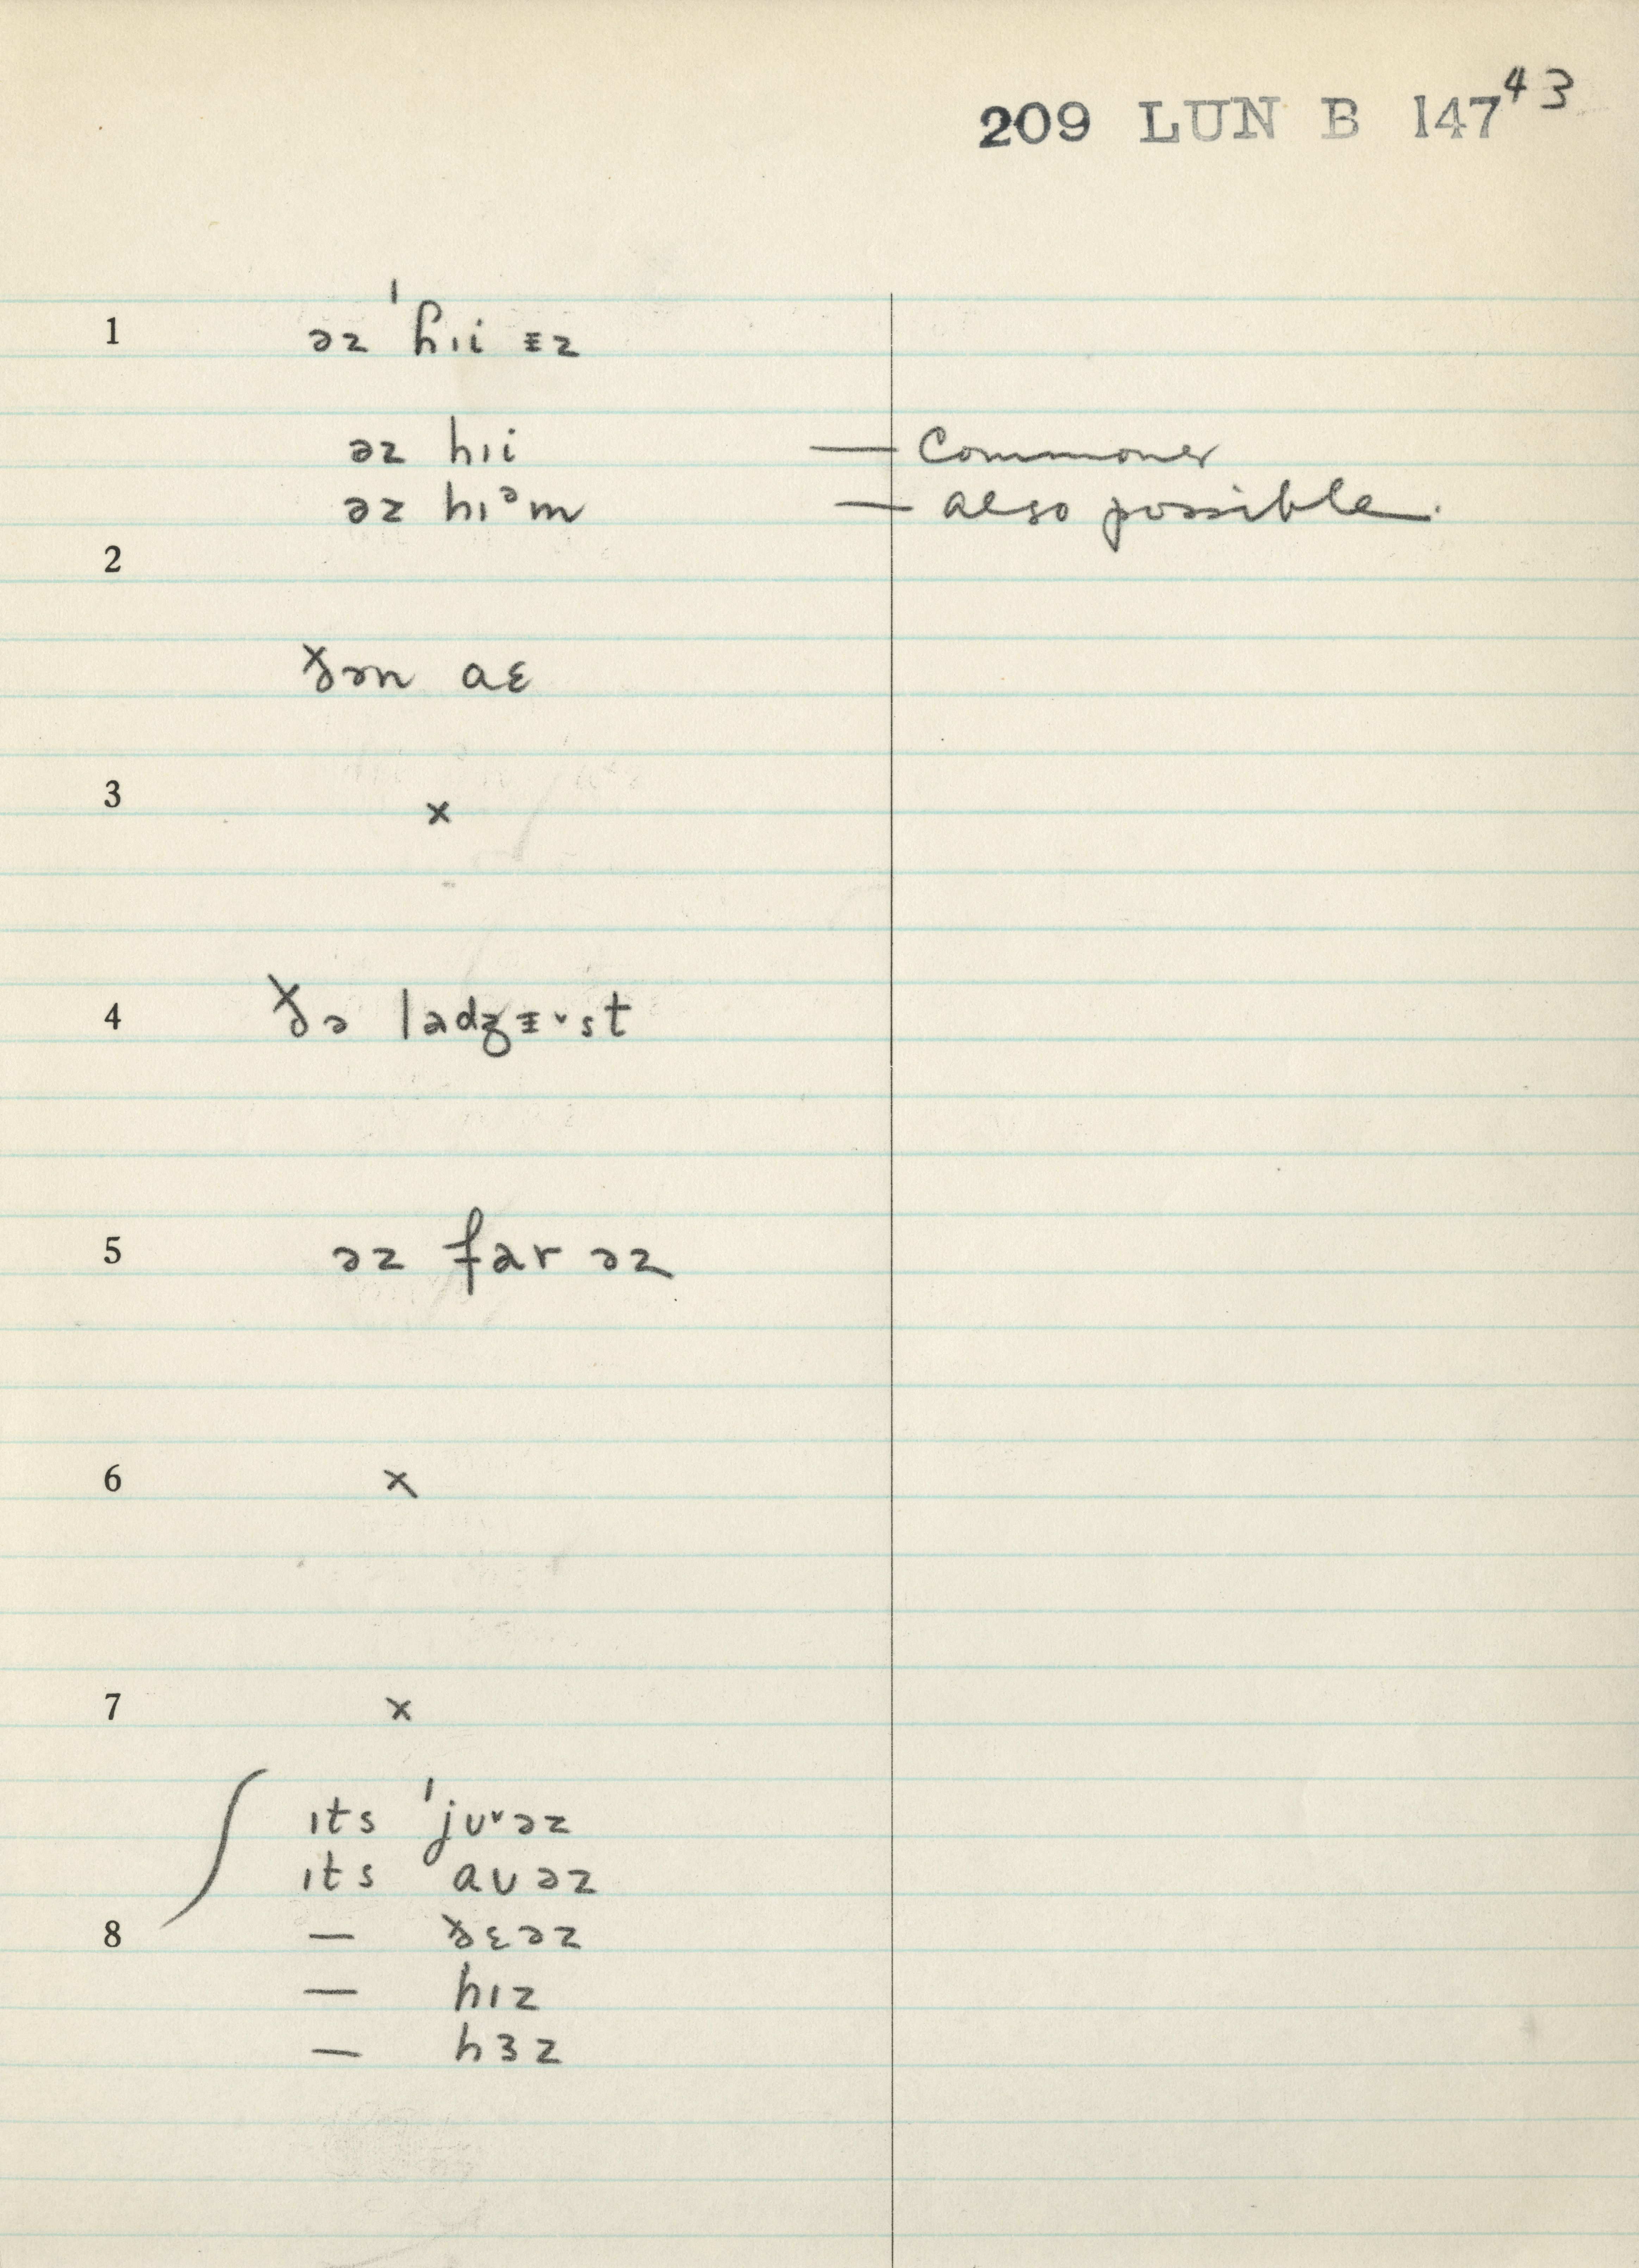 209 LUN B 147 43
1 əz ˈɦɪi ᵻz
əz hɪi — Commoner
əz hɪᵊm — also possible.
2
ɣ̵ən aɛ
3 x
4 ðə ladʒᵻ˅st
5 əz far əz
6 x
7 x
ɪts ˈjʊ˅əz
ɪts aʊəz
8 — ðɛəz
— hɪz
— hɜz